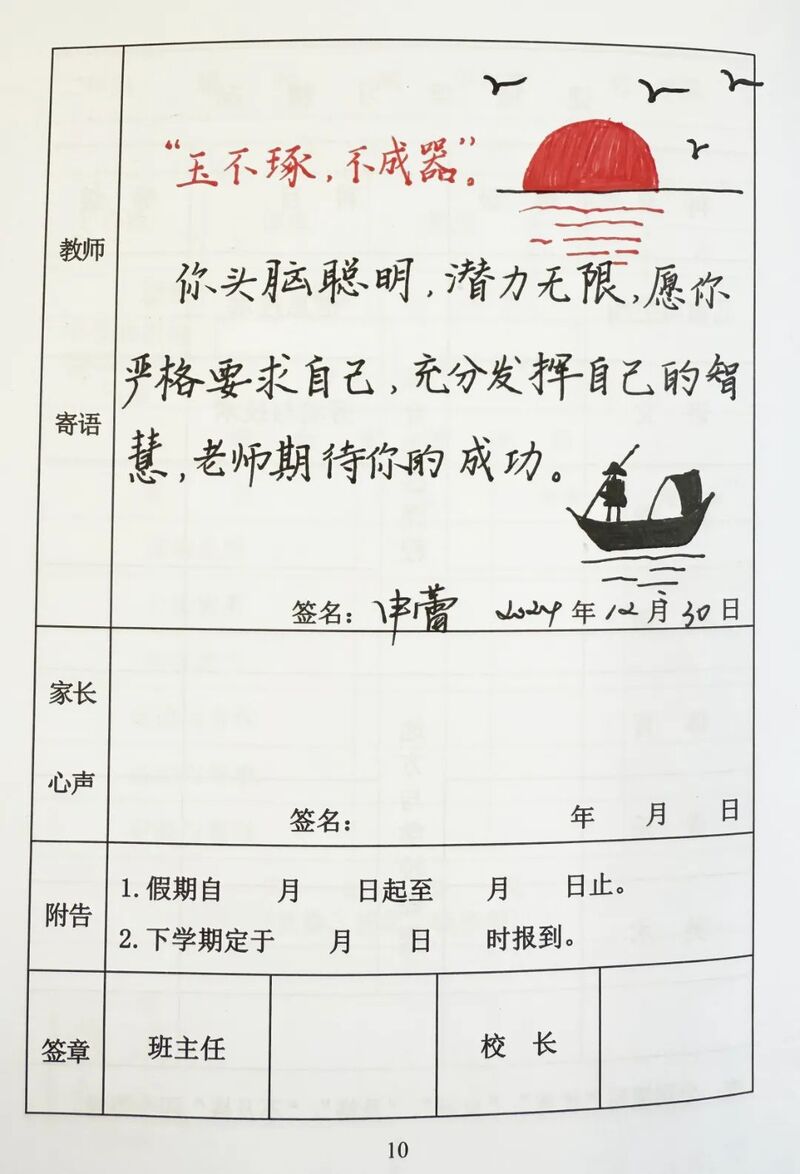 教师寄语
“玉不琢，不成器”。
你头脑聪明，潜力无限，愿你
严格要求自己，充分发挥自己的智
慧，老师期待你的成功。
签名：申蕾 2024年12月30日
家长心声
签名： 年 月 日
附告
1.假期自 月 日起至 月 日止。
2.下学期定于 月 日 时报到。
签章 班主任 校 长
10